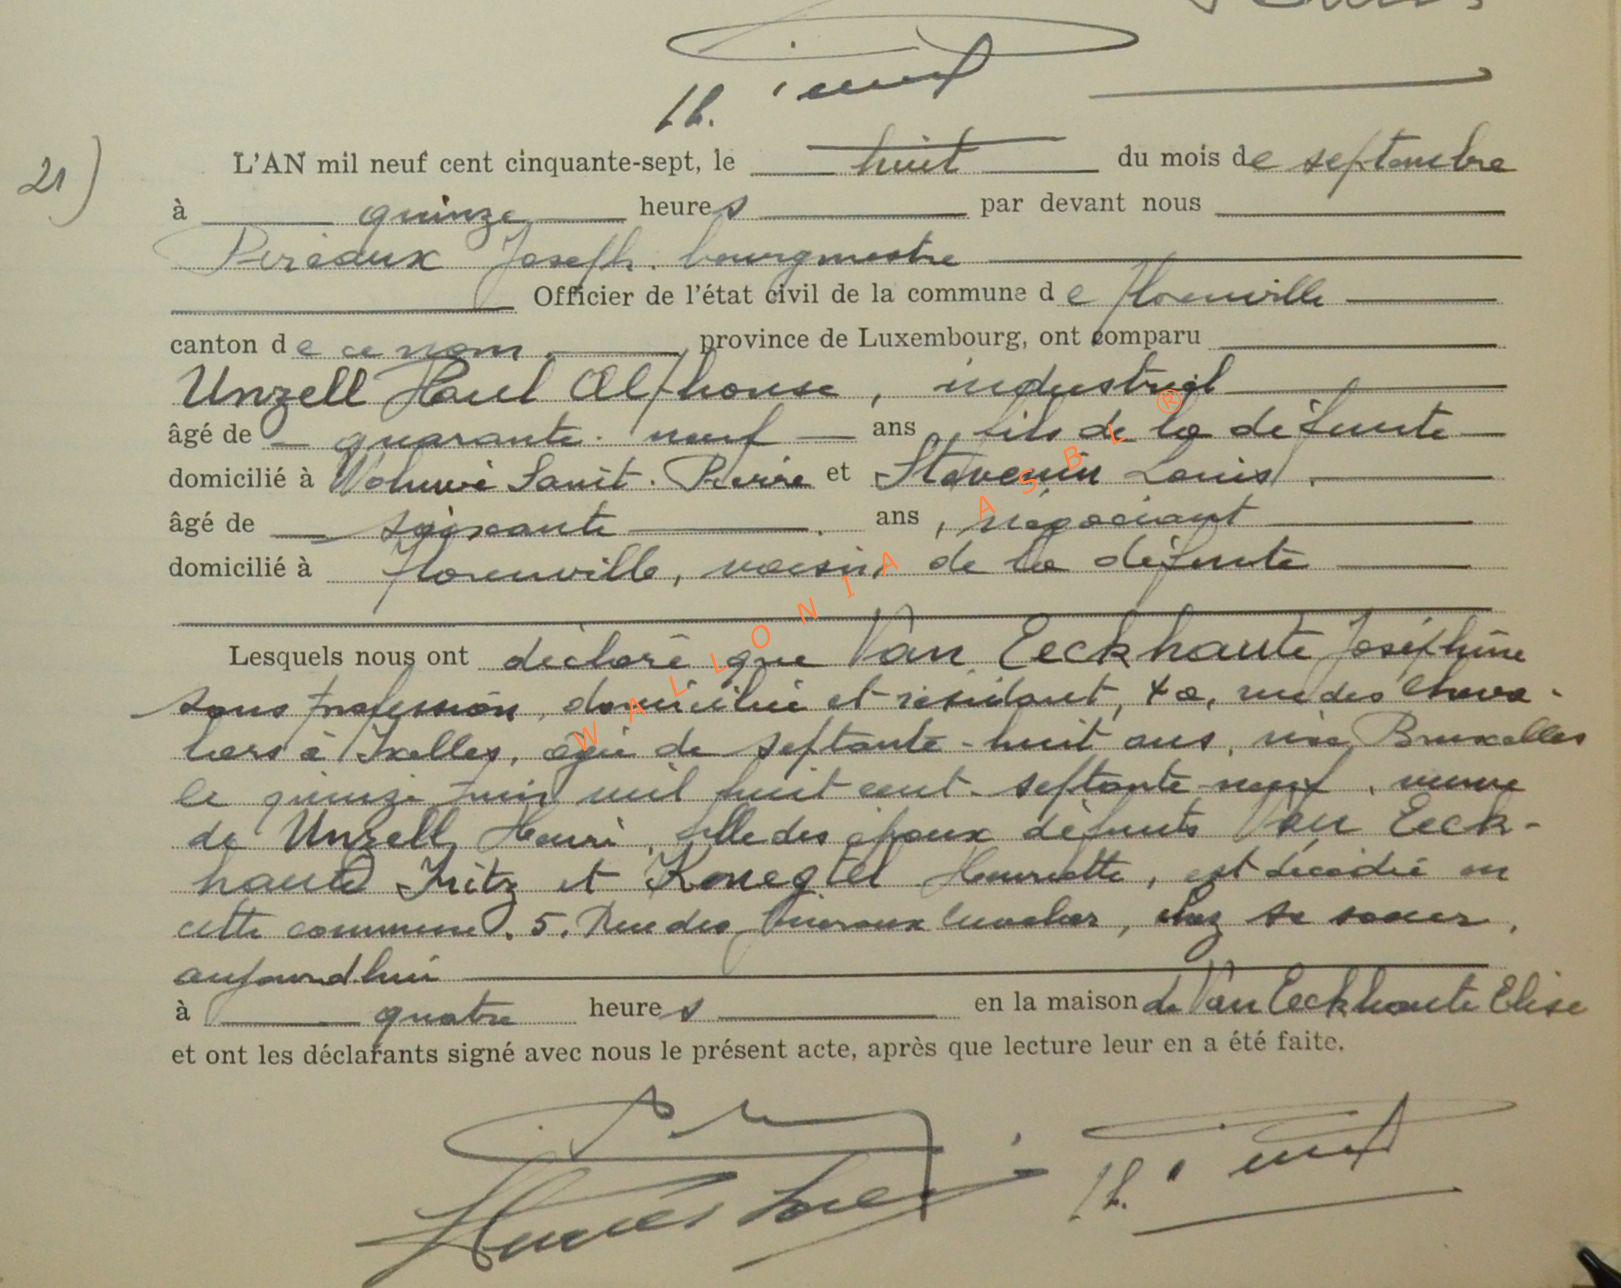 21)
L'AN mil neuf cent cinquante-sept, le huit du mois de septembre
à quinze heures par devant nous
Pireaux Joseph. bourgmestre
Officier de l'état civil de la commune de Florenville
canton de ce nom, province de Luxembourg, ont comparu
Unzell Paul Alphonse, industriel
âgé de quarante-neuf ans, fils de la défunte
domicilié à Woluwé Saint-Pierre et Stevenin Louis,
âgé de soixante ans, négociant
domicilié à Florenville, voisin de la défunte
Lesquels nous ont déclaré que Van Eeckhaute Joséphine
sans profession, domiciliée et résidant, 42, rue des Cheva-
liers à Ixelles, âgée de septante-huit ans, née Bruxelles
le quinze juin mil huit cent septante-neuf, veuve
de Unzell Henri, fille des époux défunts Van Eeck-
haute Fritz et Henriette, est décédée en
cette commune, 5, Rue des, chez sa soeur,
aujourd'hui
à quatre heures en la maison de Van Eeckhaute Elise
et ont les déclarants signé avec nous le présent acte, après que lecture leur en a été faite.
WALLONIA ASBL ®